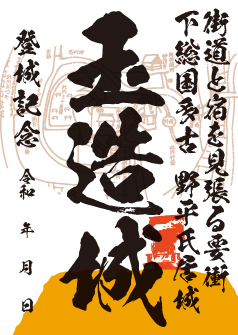 街道と宿を見張る雲衝
下総国多古 野平氏居城
玉造城
登城記念
令和 年 月 日